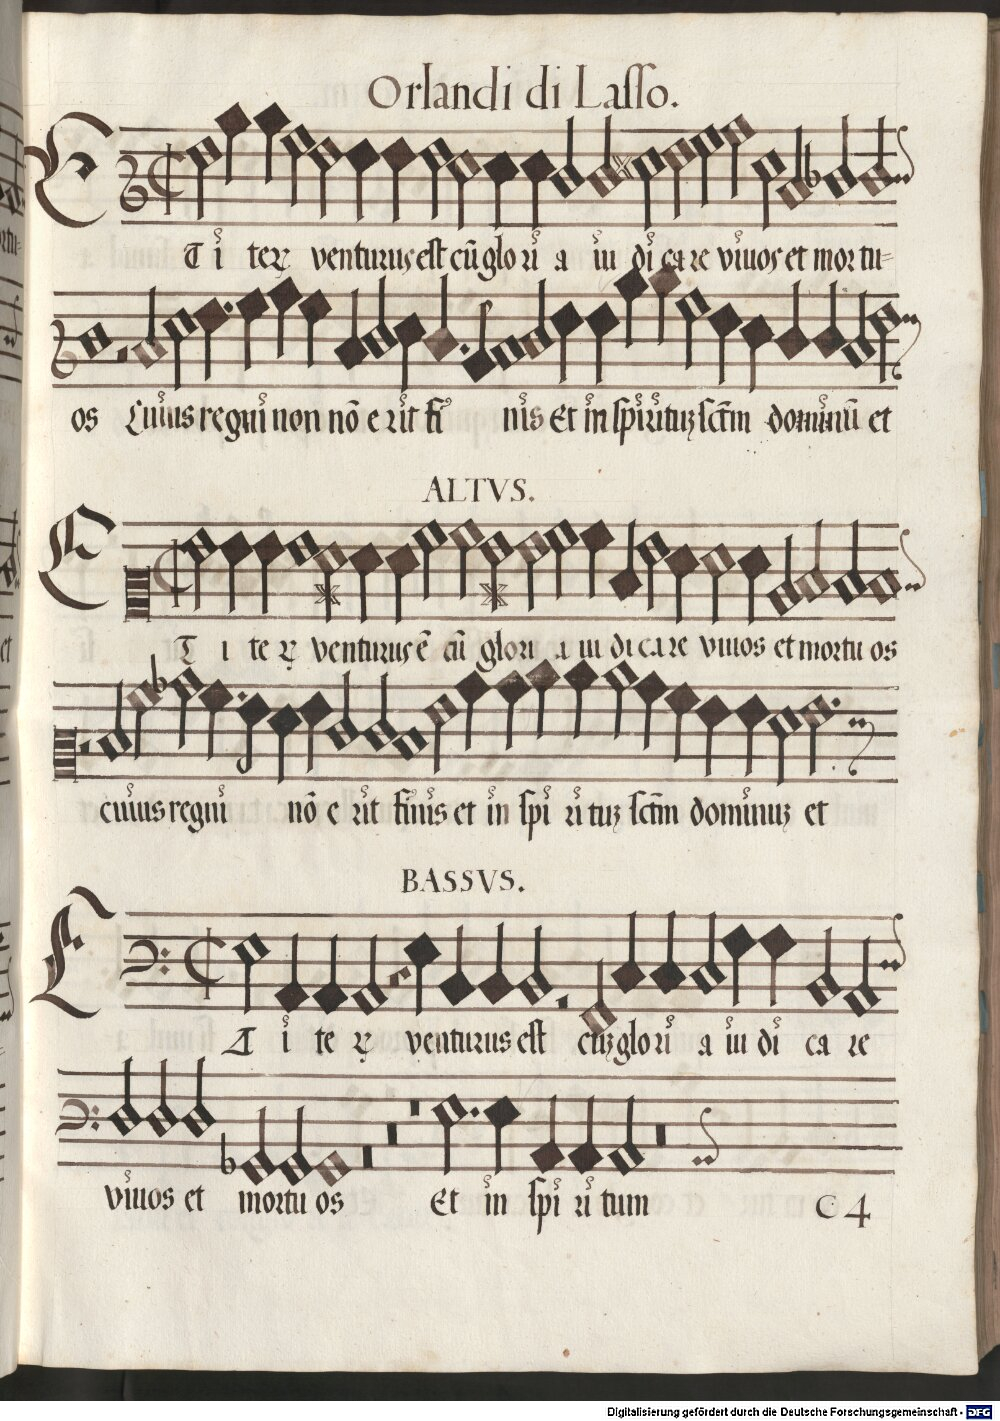 Orlandi di Lasso.
ET i terꝝ venturus est cū glo ri a iu di ca re viuos et mor tu=
os Cuius regni non nō e rit fi nis Et in spirituz sctm dominū et
ALTVS.
ET i te rꝝ venturus ē cū glori a iu di ca re viuos et mortu os
cuius regni nō e rit finis et in spi ri tuz sctm dominuz et
BASSVS.
ET i te rꝝ venturus est cuz glo ri a iu di ca re
viuos et mortu os Et in spi ri tum
C 4
Digitalisierung gefördert durch die Deutsche Forschungsgemeinschaft - DFG